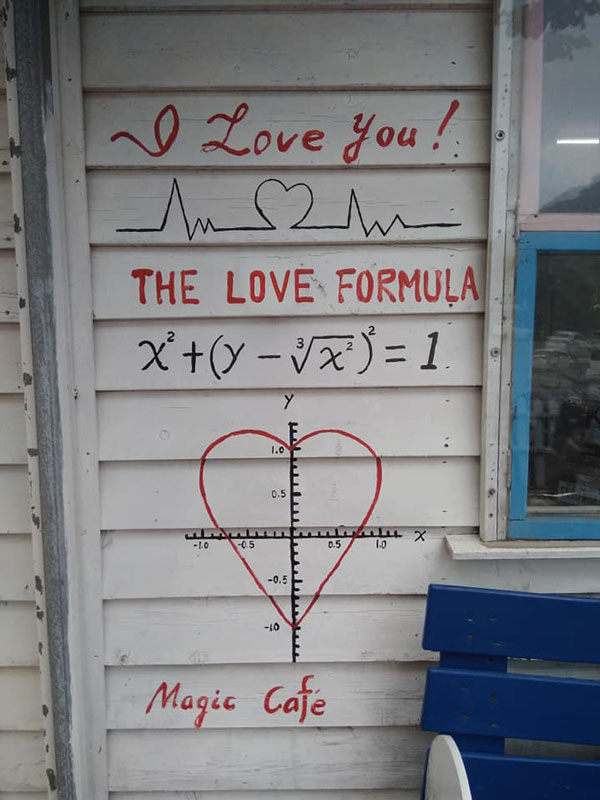 I Love You!
THE LOVE FORMULA
x²+(y-∛x²)²=1
y
1.0
0.5
-1.0 -0.5 0.5 1.0 x
-0.5
-1.0
Magic Café